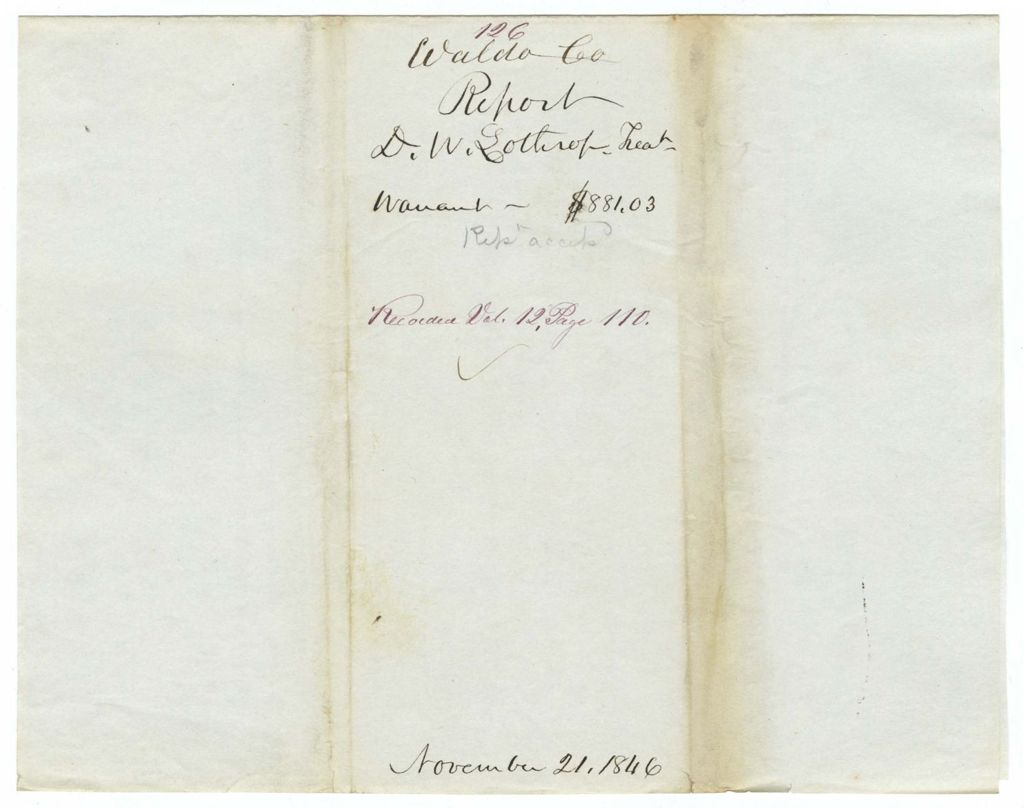 126
Waldo Co
Report
D. W. Lothrop. Treas.
Warrant - $881.03
Rept accepd
Recorded Vol. 12, Page 110.
November 21. 1846